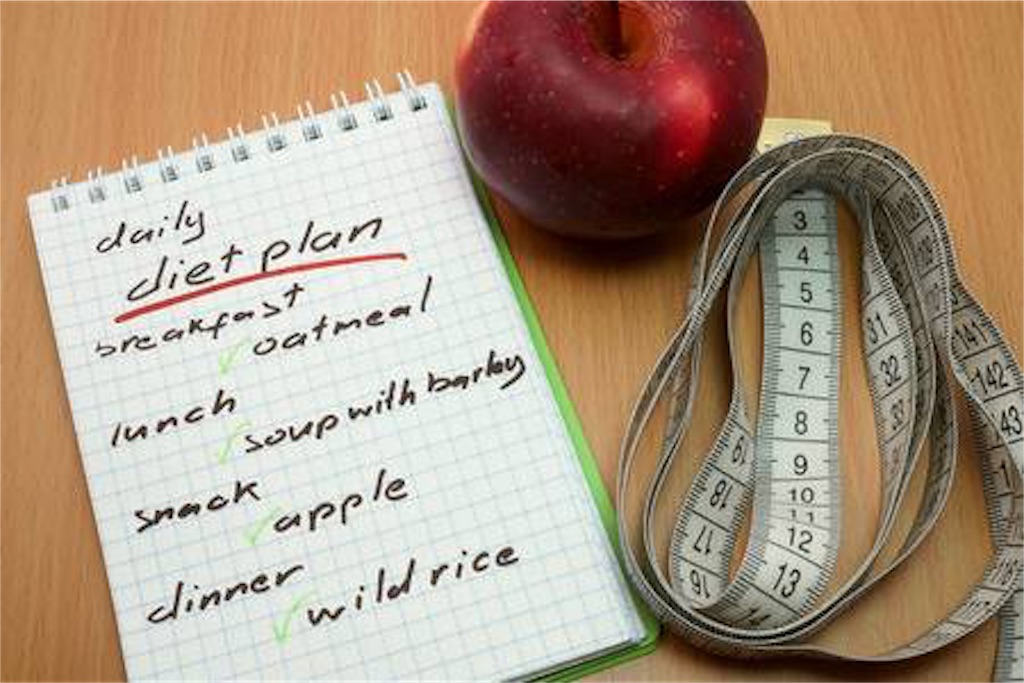 daily
diet plan
breakfast
oatmeal
lunch
soup with barley
snack
apple
dinner
wild rice
3
4
5
6
7
8
9
10
11
12
13
31
32
33
19
18
17
16
141
142
43